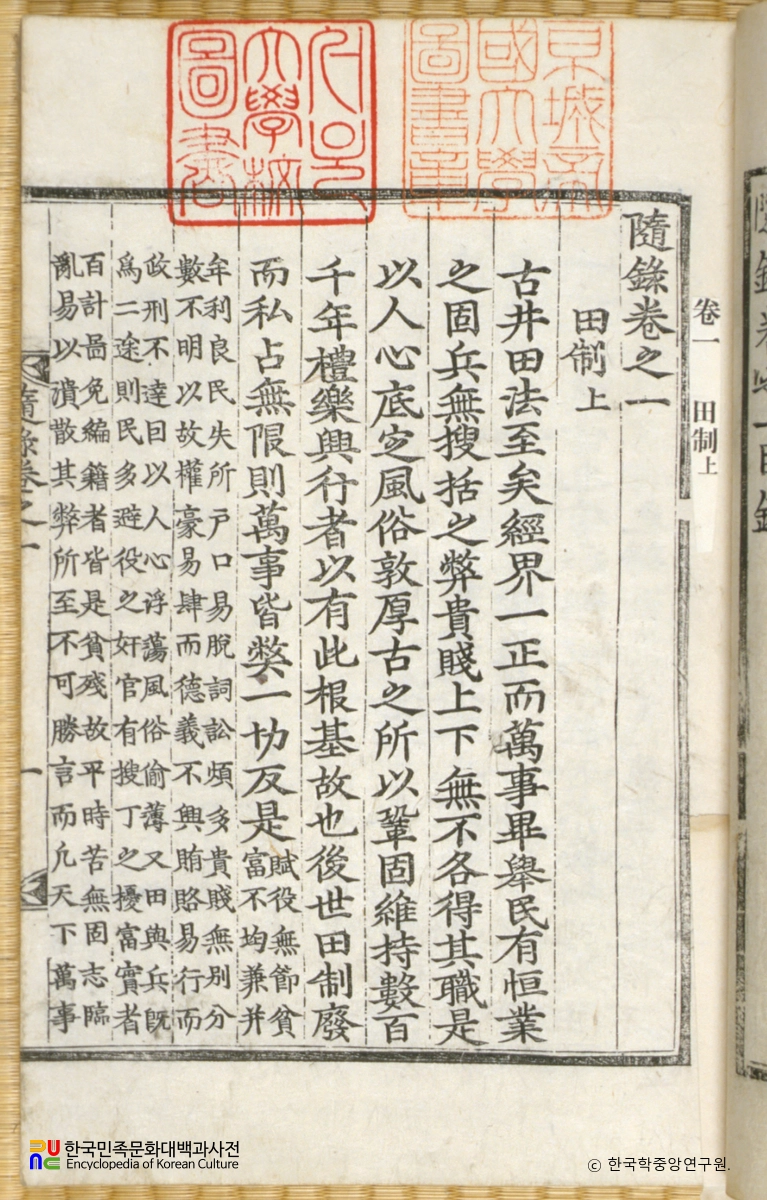 卷一 田制上
隨錄卷之一
田制上
古井田法至矣經界一正而萬事畢擧民有恒業
之固兵無搜括之弊貴賤上下無不各得其職是
以人心底定風俗敦厚古之所以鞏固維持數百
千年禮樂興行者以有此根基故也後世田制廢
而私占無限則萬事皆弊一切反是賦役無節貧
富不均兼并
牟利良民失所戶口易脫詞訟煩多貴賤無別分
數不明以故權豪易肆而德義不興賄賂易行而
政刑不達因以人心浮蕩風俗偷薄又田與兵旣
爲二途則民多避役之奸官有搜丁之擾富實者
百計啚免編籍者皆是貧殘故平時苦無固志臨
亂易以潰散其弊所至不可勝言而凡天下萬事
隨錄卷之一
一
京城帝國大學圖書章
서울大學校圖書
한국민족문화대백과사전
Encyclopedia of Korean Culture
ⓒ 한국학중앙연구원.